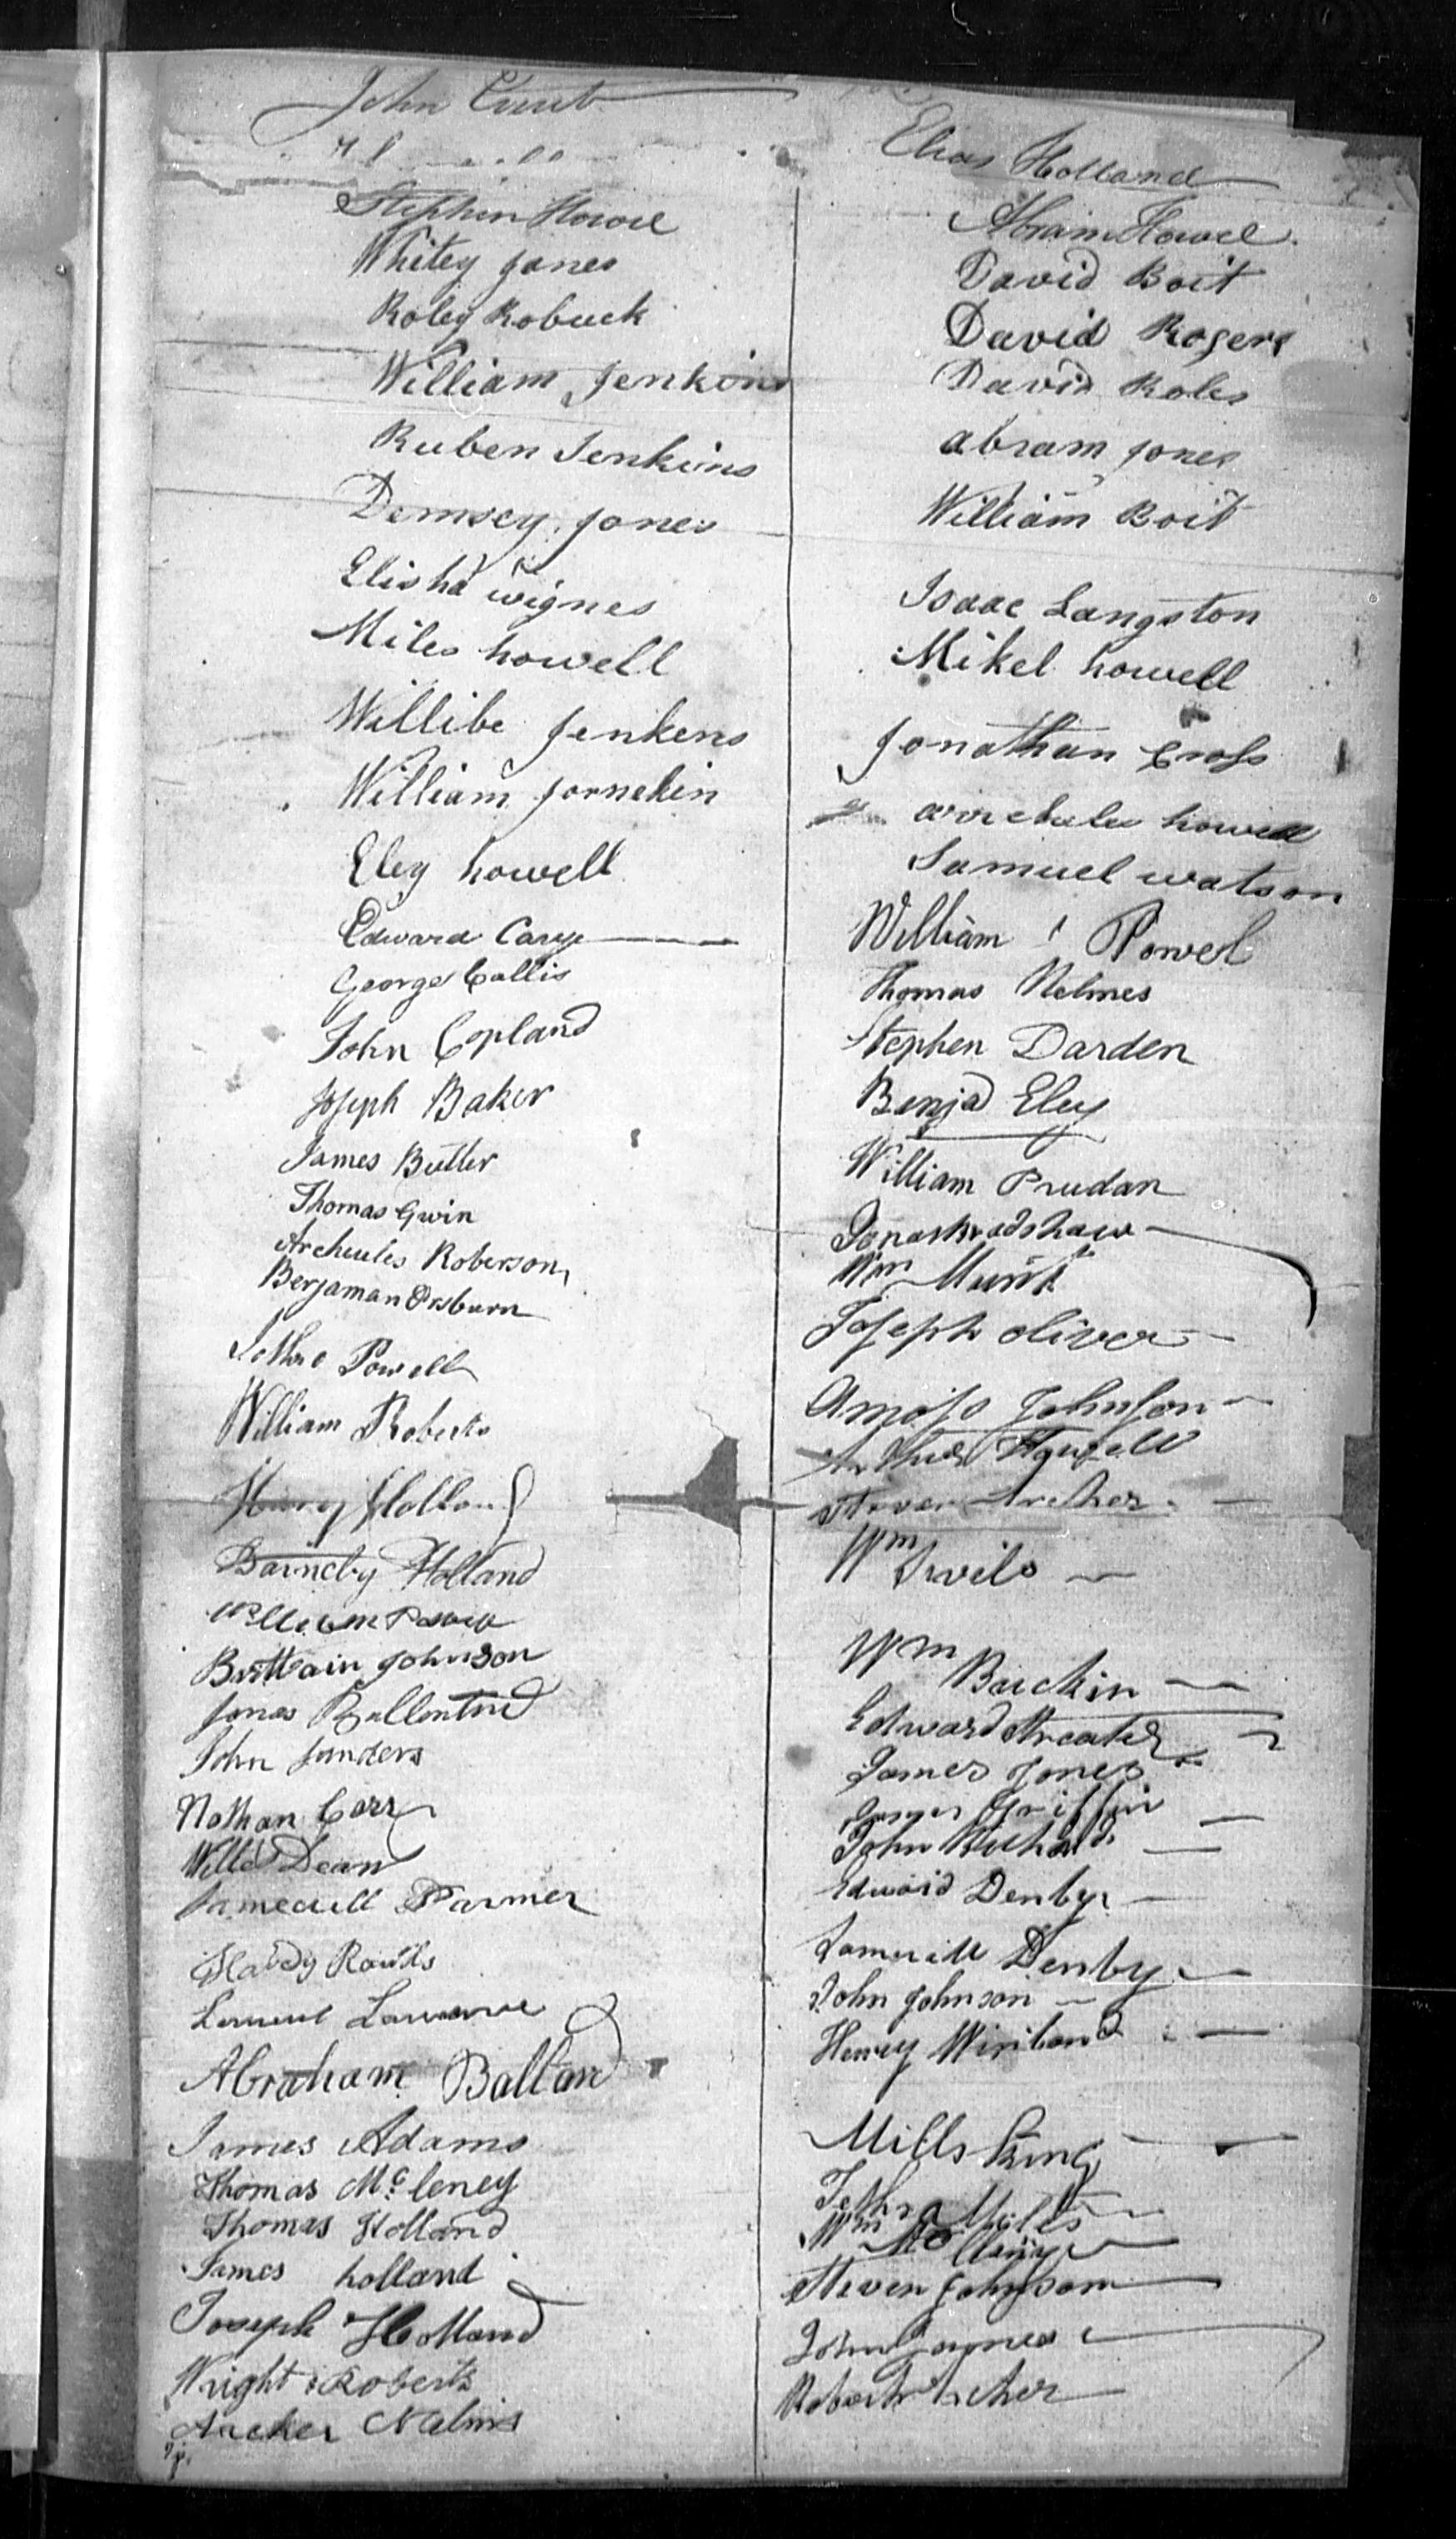 John
Stephen Howel
Whitey Jones
Roley Robuck
William Jenkins
Ruben Jenkins
Demsey Jones
Elisha wignes
Miles howell
Willibe Jenkens
William Jornekin
Eley howell
Edward Carye
George Callis
John Copland
Joseph Baker
James Butler
Thomas Gwin
Archeules Roberson
Benjaman Osburn
Jethro Powell
William Roberts
Henry Holland
Barneby Holland
William
Brittain Johnson
Jonas Ballentine
John Sanders
Nathan Carr
Willis Dean
Farmer
Hardy Rawls
Lemuel
Abraham Ballard
James Adams
Thomas Mcleney
Thomas Holland
James holland
Joseph Holland
Wright Roberts
Archer Nelms
Elias Holland
Abram Howel
David Boit
David Rogers
David Roles
abram Jones
William Boit
Isaac Langston
Mikel howell
Jonathan Cross
howell
Samuel watson
William Powel
Thomas Nelmes
Stephen Darden
Benja Eley
William Prudan
Jonas bradshaw
Wm
Joseph oliver
Amoss Johnson
Arthur Howell
Steven Archer
Wm
Wm
Edward Streater
James Jones
James Griffin
John Richards
Edward Denby
Denby
John Johnson
Henry
Mills King
Jethro Miles
Wm
Steven Johnson
John
Robert Archer